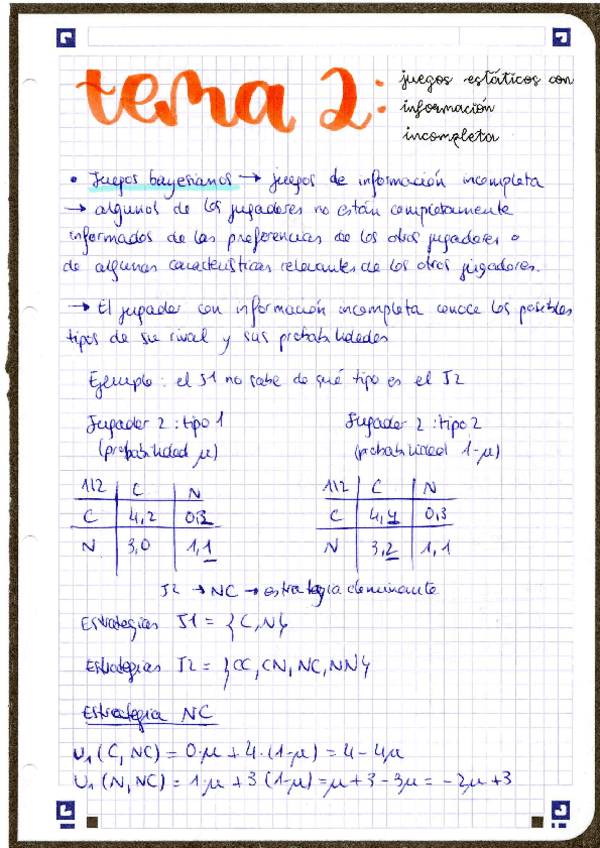 tema 2:
juegos estáticos con
información
incompleta
• Juegos bayesianos → juegos de información incompleta
→ algunos de los jugadores no están completamente
informados de las preferencias de los otros jugadores o
de algunas características relevantes de los otros jugadores.
→ El jugador con información incompleta conoce los posibles
tipos de su rival y sus probabilidades
Ejemplo: el J1 no sabe de qué tipo es el J2
Jugador 2: tipo 1
(probabilidad μ)
1\2 C N
C 4,2 0,3
N 3,0 1,1
Jugador 2: tipo 2
(probabilidad 1-μ)
1\2 C N
C 4,4 0,3
N 3,2 1,1
J2 → NC → estrategia dominante
Estrategias J1 = {C,N}
Estrategias J2 = {CC, CN, NC, NN}
Estrategia NC
U₁ (C, NC) = 0·μ + 4·(1-μ) = 4 - 4μ
U₁ (N, NC) = 1·μ + 3 (1-μ) = μ + 3 - 3μ = -2μ + 3